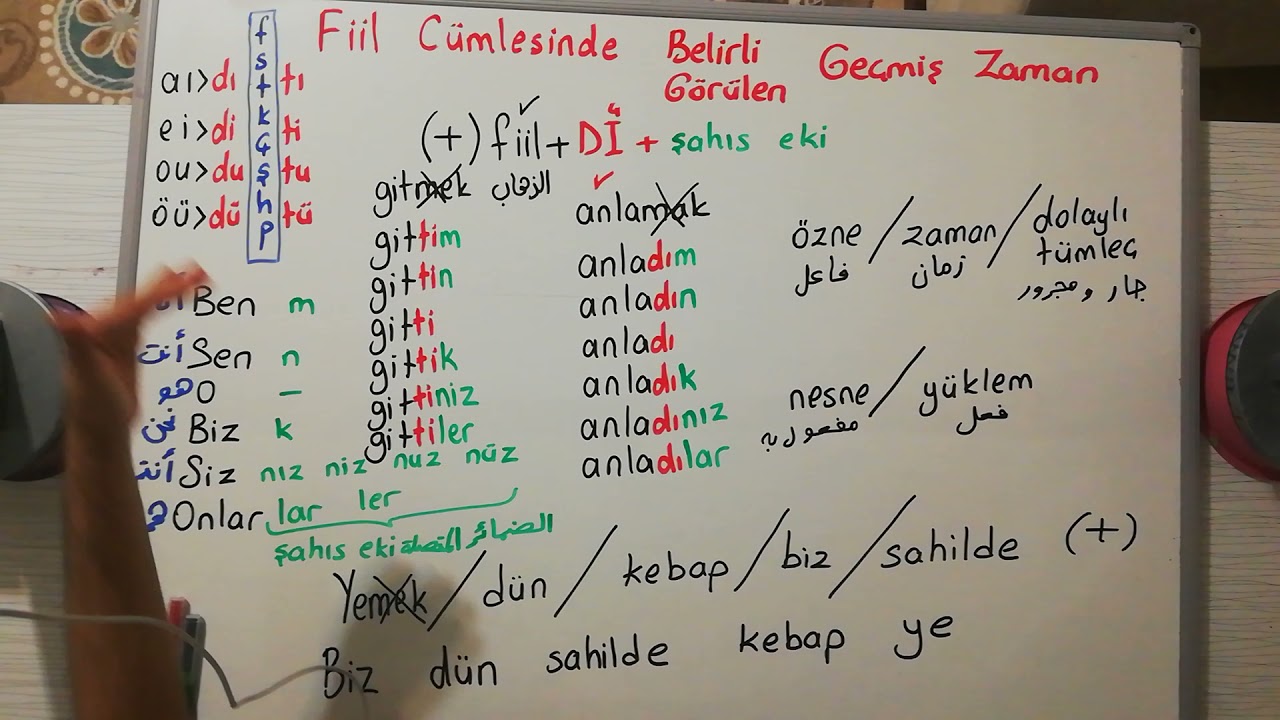 Fiil Cümlesinde Belirli Geçmiş Zaman
Görülen
(+) fiil + Dİ⁴ + şahıs eki
aı>dı f tı
s
t
ei>di k ti
ç
ou>du ş tu
öü>dü h tü
p
gitmek الذهاب
gittim
gittin
gitti
gittik
gittiniz
gittiler
anlamak
anladım
anladın
anladı
anladık
anladınız
anladılar
özne / zaman / dolaylı tümleç
فاعل زمان جار و مجرور
nesne / yüklem
مفعول به فعل
Ben m
أنت Sen n
هو O –
نحن Biz k
Siz nız niz nuz nüz
Onlar lar ler
şahıs eki الضمائر المتصلة
Yemek / dün / kebap / biz / sahilde (+)
Biz dün sahilde kebap ye